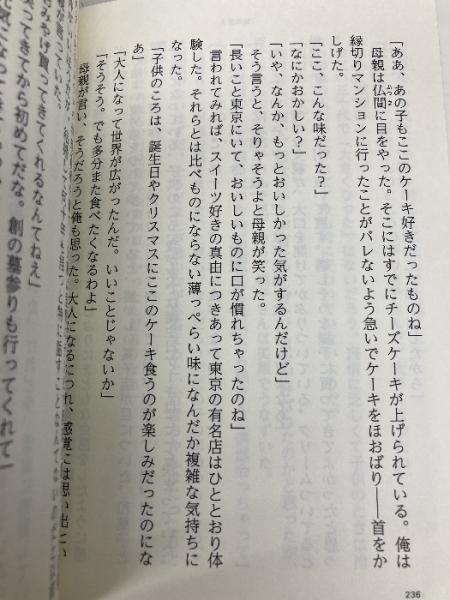 「ああ、あの子もここのケーキ好きだったものね」
母親は仏間に目をやった。そこにはすでにチーズケーキが上げられている。俺は
ぶつま
縁切りマンションに行ったことがバレないよう急いでケーキをほおばり――首をか
しげた。
「ここ、こんな味だった？」
「なにかおかしい？」
「いや、なんか、もっとおいしかった気がするんだけど」
そう言うと、そりゃそうよと母親が笑った。
「長いこと東京にいて、おいしいものに口が慣れちゃったのね」
言われてみれば、スイーツ好きの真由につきあって東京の有名店はひととおり体
験した。それらとは比べものにならない薄っぺらい味になんだか複雑な気持ちに
なった。
「子供のころは、誕生日やクリスマスにここのケーキ食うのが楽しみだったのにな
あ」
「大人になって世界が広がったんだ。いいことじゃないか」
「そうそう。でも多分また食べたくなるわよ」
母親が言い、そうだろうと俺も思った。大人になるにつれ、感覚には思い出とい
みやげ買ってきてくれるなんてねえ」
ってきてから初めてだな。創の墓参りも行ってくれて」
236